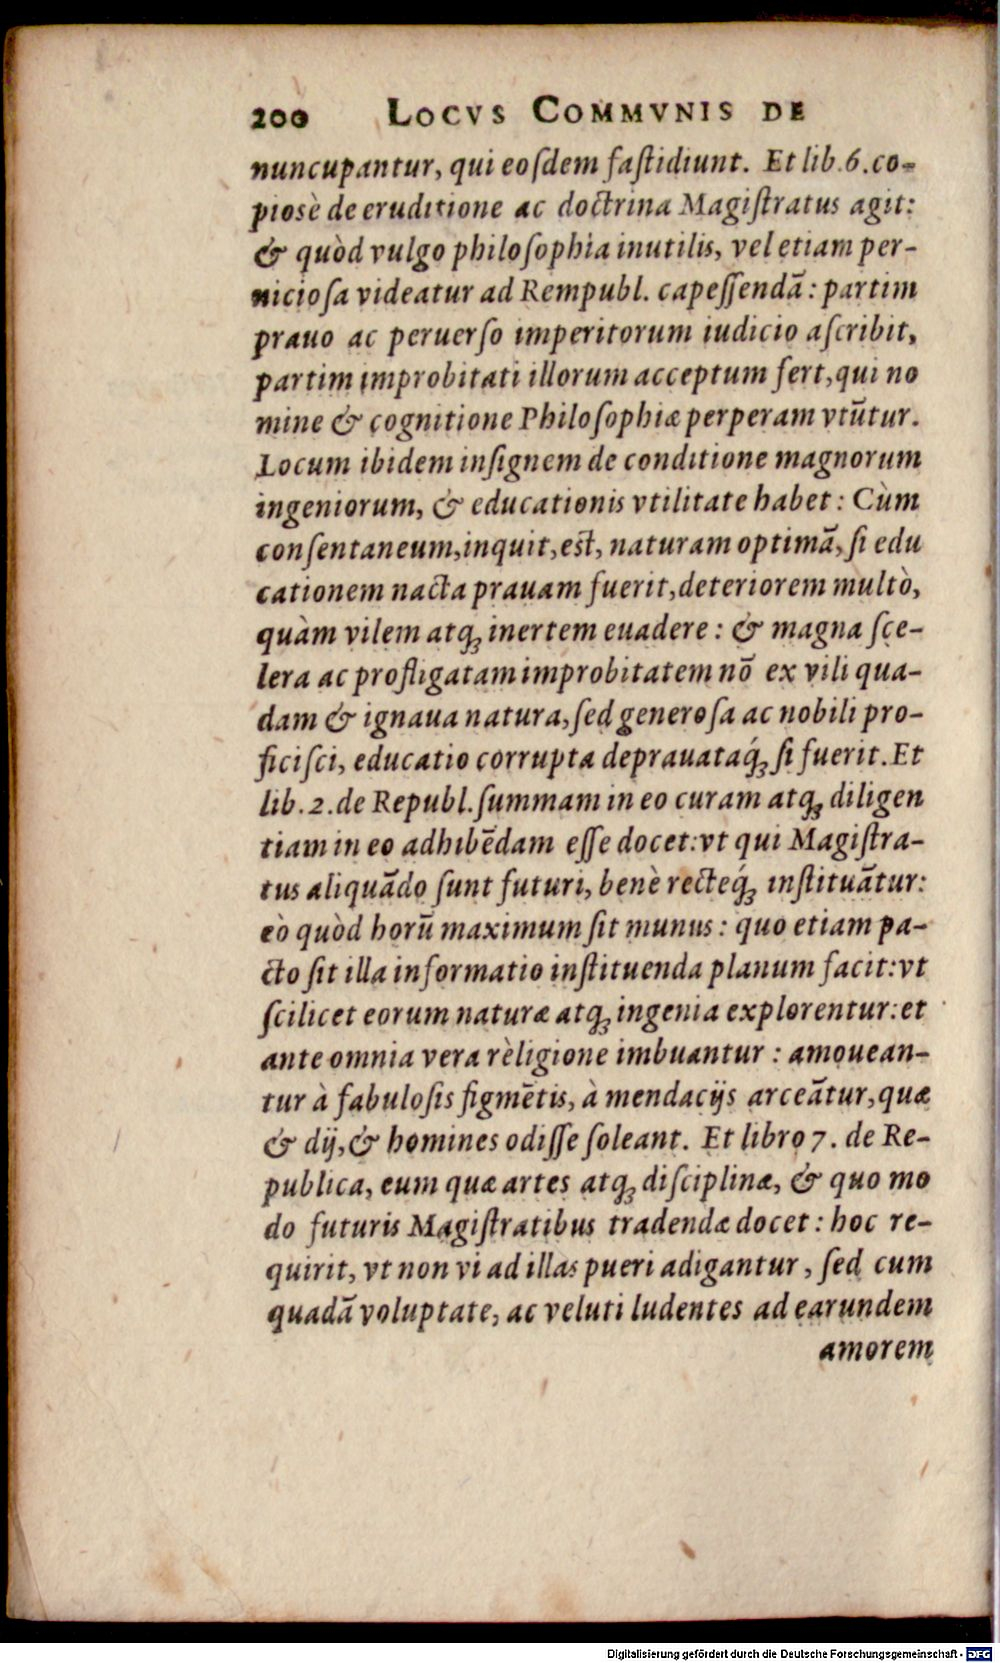 200 LOCVS COMMVNIS DE
nuncupantur, qui eoſdem faſtidiunt. Et lib. 6. co-
piosè de eruditione ac doctrina Magiſtratus agit:
& quòd vulgo philoſophia inutilis, vel etiam per-
nicioſa videatur ad Rempubl. capeſſendã: partim
prauo ac peruerſo imperitorum iudicio aſcribit,
partim improbitati illorum acceptum fert, qui no
mine & cognitione Philoſophiæ perperam vtũtur.
Locum ibidem inſignem de conditione magnorum
ingeniorum, & educationis vtilitate habet: Cùm
conſentaneum, inquit, est, naturam optimã, ſi edu
cationem nacta prauam fuerit, deteriorem multò,
quàm vilem atq́ꝫ inertem euadere: & magna ſce-
lera ac profligatam improbitatem nõ ex vili qua-
dam & ignaua natura, ſed generoſa ac nobili pro-
ficiſci, educatio corrupta deprauataq́ꝫ ſi fuerit. Et
lib. 2. de Republ. ſummam in eo curam atqꝫ diligen
tiam in eo adhibẽdam eſſe docet: vt qui Magiſtra-
tus aliquãdo ſunt futuri, benè recteq́ꝫ inſtituãtur:
eò quòd horũ maximum ſit munus: quo etiam pa-
cto ſit illa informatio inſtituenda planum facit: vt
ſcilicet eorum naturæ atqꝫ ingenia explorentur: et
ante omnia vera rèligione imbuantur: amouean-
tur à fabuloſis figmẽtis, à mendacijs arceãtur, quæ
& dij, & homines odiſſe ſoleant. Et libro 7. de Re-
publica, eum quæ artes atqꝫ diſciplinæ, & quo mo
do futuris Magiſtratibus tradendæ docet: hoc re-
quirit, vt non vi ad illas pueri adigantur, ſed cum
quadã voluptate, ac veluti ludentes ad earundem
amorem
Digitalisierung gefördert durch die Deutsche Forschungsgemeinschaft - DFG